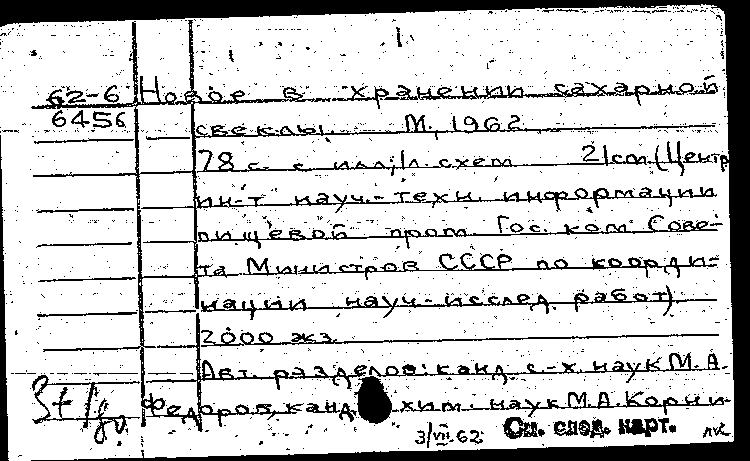 62-6 Новое в хранении сахарной
6456 свеклы. М., 1962.
78 с. с илл; 1 л. схем 21 см. (Центр
ин-т науч.-техн. информации
пищевой пром. Гос. ком. Сове-
та Министров СССР по коорди-
нации науч-исслед. работ)
2000 экз.
Авт. разделов: канд. с.-х. наук М.А.
Федоров, канд. хим. наук М.А. Корни-
3/VII 62 См. след. карт.